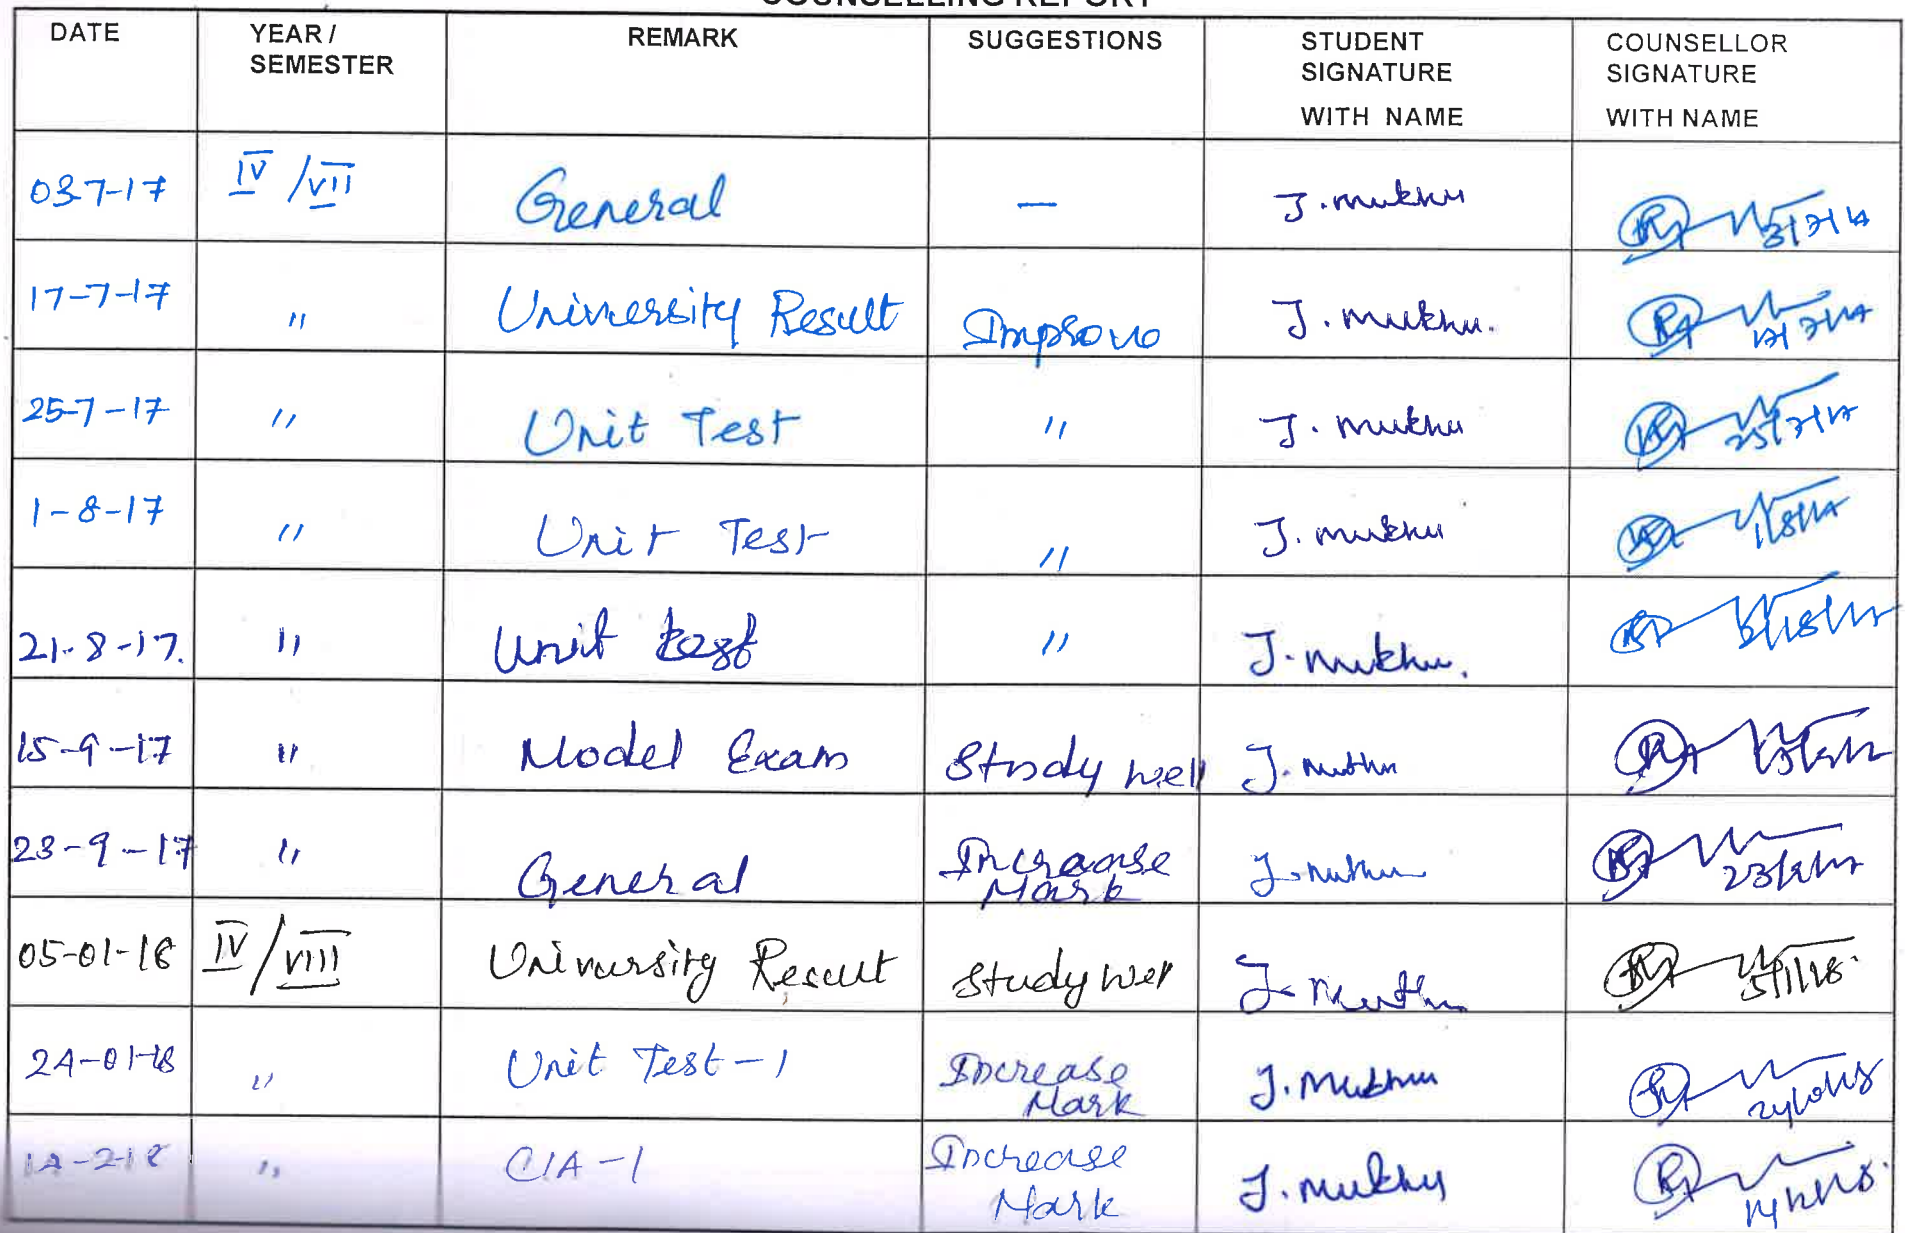 COUNSELLING REPORT
DATE YEAR / SEMESTER REMARK SUGGESTIONS STUDENT SIGNATURE WITH NAME COUNSELLOR SIGNATURE WITH NAME
03-7-17 IV / VII General — J. Muthu 3/7/17
17-7-17 " University Result Improve J. Muthu. 17/7/17
25-7-17 " Unit Test " J. Muthu 25/7/17
1-8-17 " Unit Test " J. Muthu 1/8/17
21-8-17. " Unit test " J. Muthu. 21/8/17
15-9-17 " Model Exam Study well J. Muthu
23-9-17 " General Increase Mark J. Muthu 23/9/17
05-01-18 IV / VIII University Result Study well J. Muthu 5/1/18.
24-01-18 " Unit Test-1 Increase Mark J. Muthu 24/01/18
14-2-18 " CIA-1 Increase Mark J. Muthu 14/2/18.